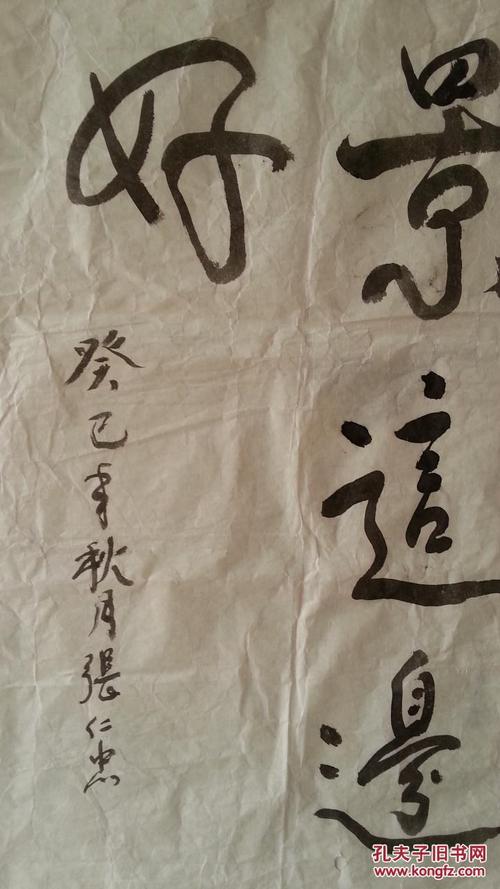 景這邊
好
癸巳年秋月張仁忠
孔夫子旧书网
www.kongfz.com